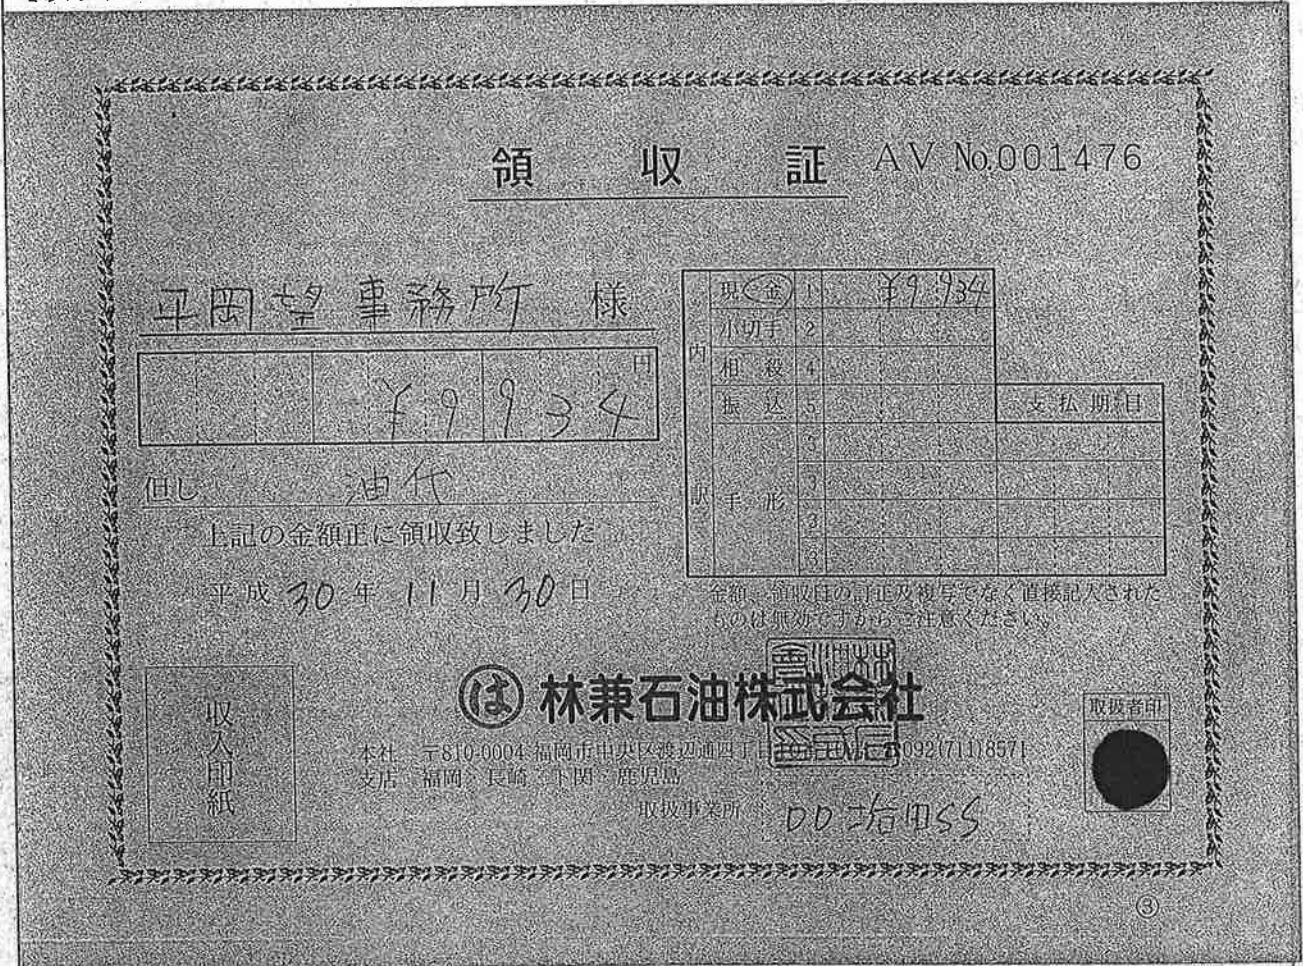 領収証 AV No.001476
平岡望事務所 様
円
¥9934
但し 油代
上記の金額正に領収致しました
平成30年11月30日
内訳
現金 1 ¥9,934
小切手 2
相殺 4
振込 5 支払期日
手形 3
3
3
3
金額、領収日の訂正及複写でなく直接記入された
ものは無効ですからご注意ください。
収入印紙
は 林兼石油株式会社
本社 〒810-0004 福岡市中央区渡辺通四丁目 ☎092(711)8571
支店 福岡 長崎 下関 鹿児島
取扱事業所 DD 田SS
取扱者印
③